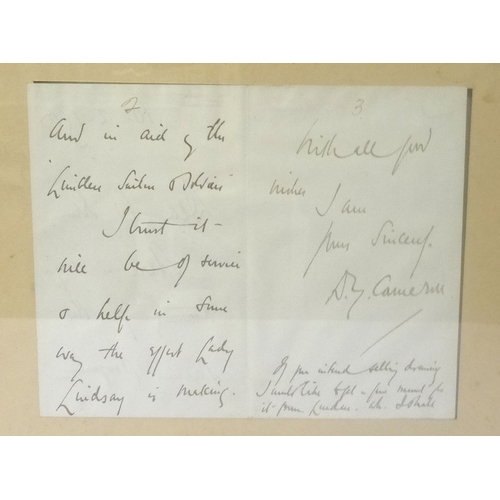 2
And in aid of the
Limbless Sailors & Soldiers
I trust it
will be of service
& help in some
way the effort Lady
Lindsay is making.
3
With all good
wishes
I am
Yours Sincerely.
D.Y. Cameron
If you intend selling drawing
I would like to get a
it from London. I shall